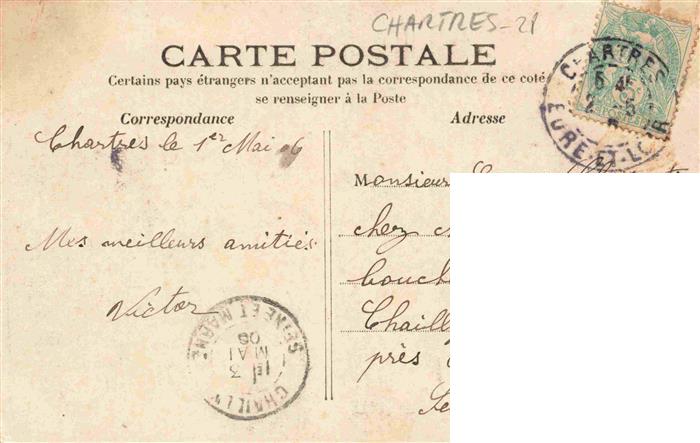 CHARTRES-21
CARTE POSTALE
Certains pays étrangers n'acceptent pas la correspondance de ce coté
se renseigner à la Poste
Correspondance
Adresse
CHARTRES
EURE-ET-LOIR
Chartres le 1er Mai 06
Mes meilleurs amitiés
Victor
Monsieur
chez
bouch
Chailly
près
Se
CHAILLY
SEINE ET MARNE
3
MAI
06